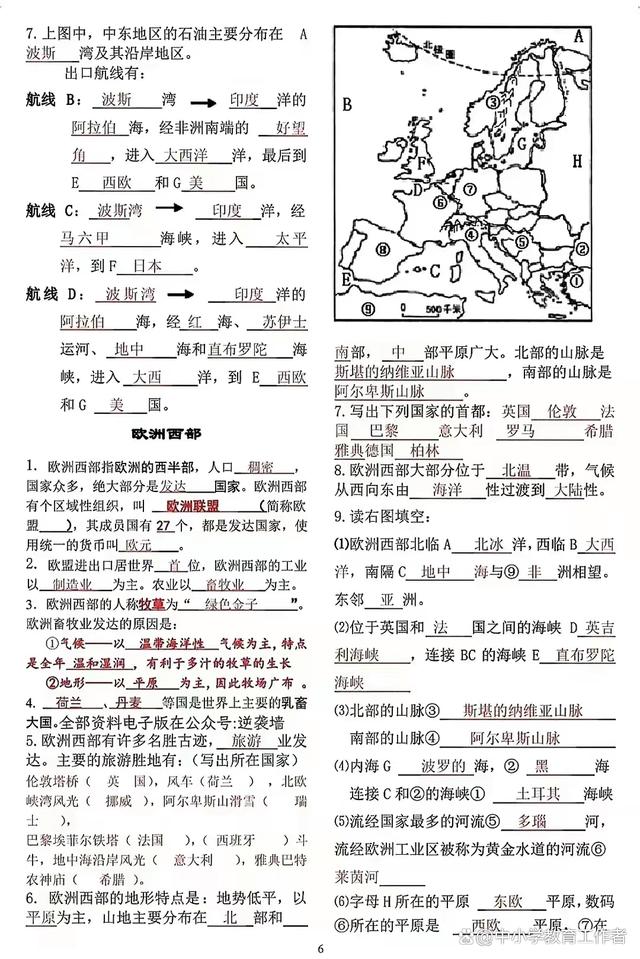 7. 上图中，中东地区的石油主要分布在 A
波斯 湾及其沿岸地区。
出口航线有：
航线 B： 波斯 湾 → 印度 洋的
阿拉伯 海，经非洲南端的 好望
角 ，进入 大西洋 洋，最后到
E 西欧 和 G 美 国。
航线 C： 波斯湾 → 印度 洋，经
马六甲 海峡，进入 太平
洋，到 F 日本 。
航线 D： 波斯湾 → 印度 洋的
阿拉伯 海，经 红 海、 苏伊士
运河、 地中 海和直布罗陀 海
峡，进入 大西 洋，到 E 西欧
和 G 美 国。
欧洲西部
1. 欧洲西部指欧洲的西半部，人口 稠密 ，
国家众多，绝大部分是发达 国家。欧洲西部
有个区域性组织，叫 欧洲联盟 （简称欧
盟 ），其成员国有 27 个，都是发达国家，使
用统一的货币叫 欧元 。
2. 欧盟进出口居世界 首 位，欧洲西部的工业
以 制造业 为主。农业以 畜牧业 为主。
3. 欧洲西部的人称牧草为“ 绿色金子 ”。
欧洲畜牧业发达的原因是：
①气候——以 温带海洋性 气候为主，特点
是全年 温和湿润 ，有利于多汁的牧草的生长
②地形——以 平原 为主，因此牧场广布 。
4. 荷兰 、丹麦 等国是世界上主要的乳畜
大国。全部资料电子版在公众号:逆袭墙
5. 欧洲西部有许多名胜古迹， 旅游 业发
达。主要的旅游胜地有：（写出所在国家）
伦敦塔桥（ 英 国），风车（荷兰 ） ，北欧
峡湾风光（ 挪威 ），阿尔卑斯山滑雪（ 瑞
士 ），
巴黎埃菲尔铁塔（ 法国 ），（ 西班牙 ）斗
牛，地中海沿岸风光（ 意大利 ），雅典巴特
农神庙（ 希腊 ）。
6. 欧洲西部的地形特点是：地势低平，以
平原为主，山地主要分布在 北 部和
A
北极圈
B
③
G
H
F
D
⑦
⑥
④
⑤
②
⑧
C
①
E
⑨
0 500千米
南部， 中 部平原广大。北部的山脉是
斯堪的纳维亚山脉 ，南部的山脉是
阿尔卑斯山脉 。
7. 写出下列国家的首都：英国 伦敦 法
国 巴黎 意大利 罗马 希腊
雅典德国 柏林
8. 欧洲西部大部分位于 北温 带，气候
从西向东由 海洋 性过渡到 大陆性。
9. 读右图填空：
⑴欧洲西部北临 A 北冰 洋，西临 B 大西
洋，南隔 C 地中 海与⑨ 非 洲相望。
东邻 亚 洲。
⑵位于英国和 法 国之间的海峡 D 英吉
利海峡 ，连接 BC 的海峡 E 直布罗陀
海峡
⑶北部的山脉③ 斯堪的纳维亚山脉
南部的山脉④ 阿尔卑斯山脉
⑷内海 G 波罗的 海，② 黑 海
连接 C 和②的海峡① 土耳其 海峡
⑸流经国家最多的河流⑤ 多瑙 河，
流经欧洲工业区被称为黄金水道的河流⑥
莱茵河
⑹字母 H 所在的平原 东欧 平原，数码
⑥所在的平原是 西欧 平原，⑦在
6
@中小学教育工作者